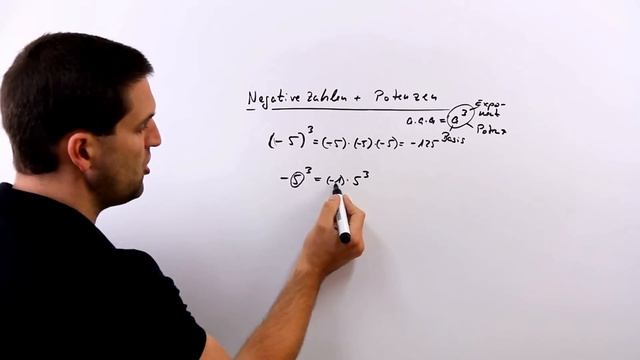 Negative Zahlen + Potenzen
a·a·a = a³ Exponent
Potenz
Basis
(-5)³ = (-5)·(-5)·(-5) = -125
-5³ = (-1)·5³